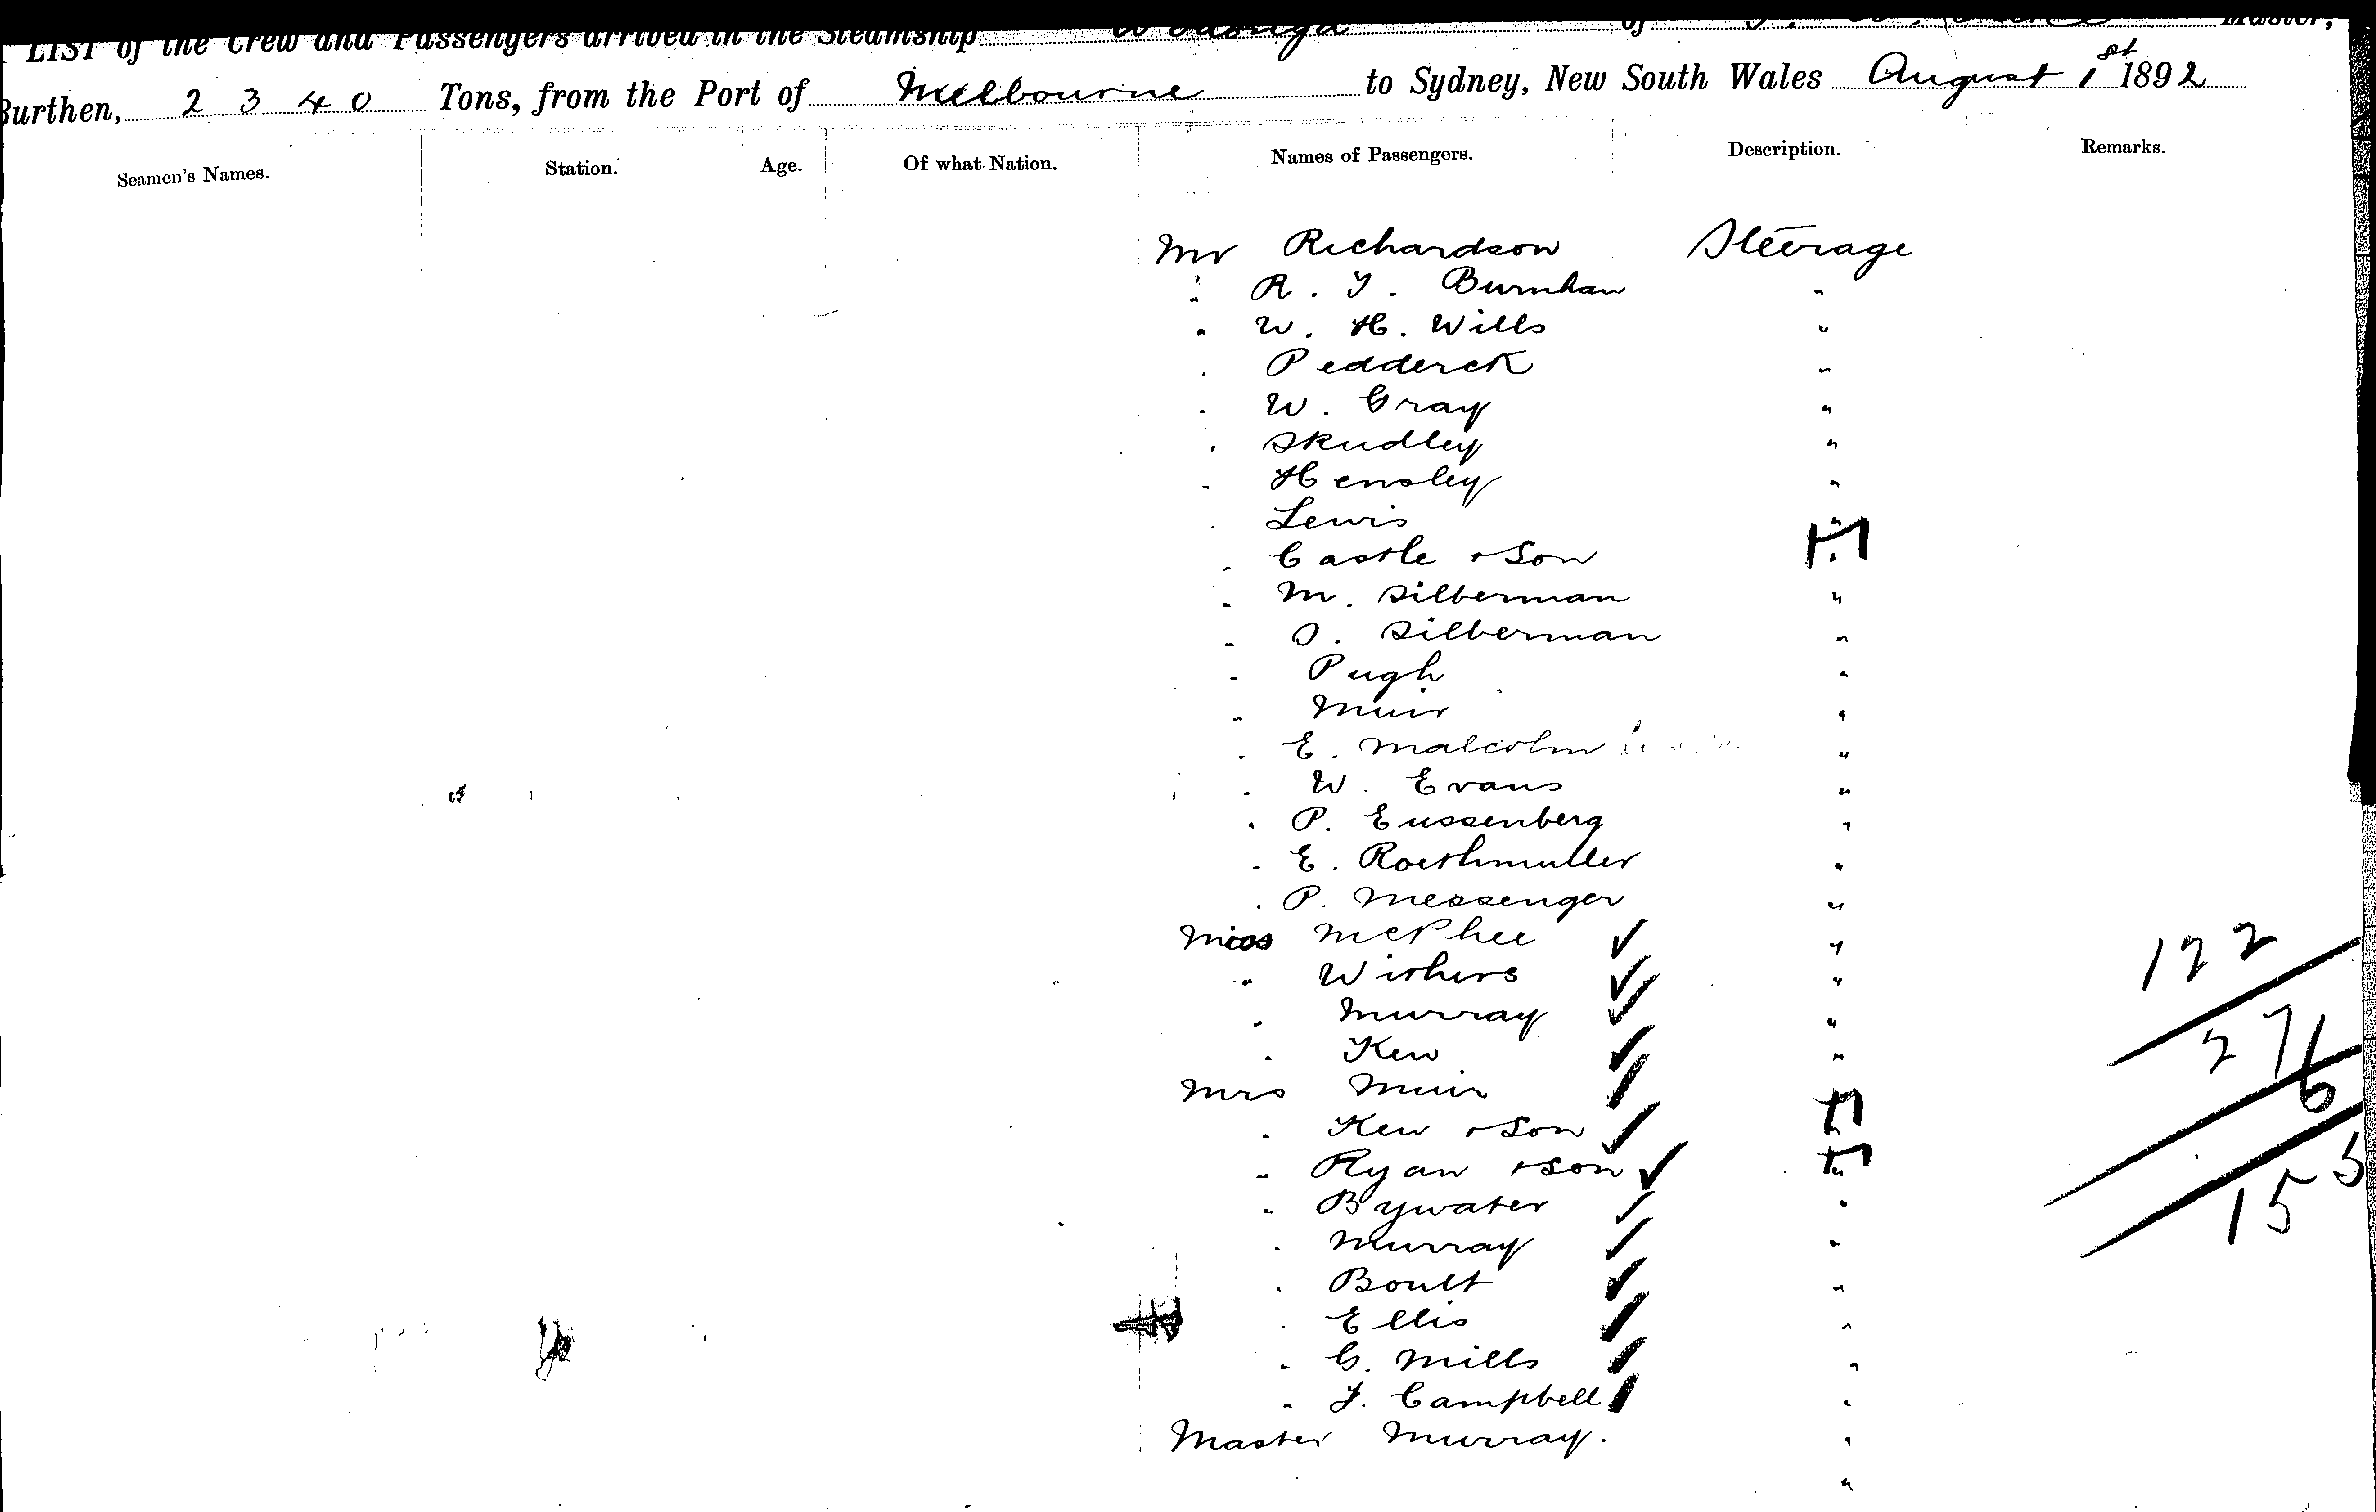 LIST of the Crew and Passengers arrived in the Steamship Wodonga of Master,
Burthen, 2340 Tons, from the Port of Melbourne to Sydney, New South Wales August 1st 1892
Seamen's Names. Station. Age. Of what Nation. Names of Passengers. Description. Remarks.
Mr Richardson Steerage
" R. J. Burnham "
" W. H. Wills "
" Pedderck "
" W. Gray "
" Skudley "
" Hensley "
" Lewis "
" Castle + Son "
" M. Silberman "
" S. Silberman "
" Pugh "
" Muir "
" E. Malcolm "
" W. Evans "
" P. Eussenberg "
" E. Roethmuller "
" P. Messenger "
Miss McPhee ✓ "
" Withers ✓ "
" Murray ✓ "
" Kew ✓ "
Mrs Muir ✓ "
" Kew + Son ✓ "
" Ryan + Son ✓ "
" Bywater ✓ "
" Murray ✓ "
" Boult ✓ "
" Ellis ✓ "
" G. Mills ✓ "
" J. Campbell ✓ "
Master Murray. "
"
122
276
155